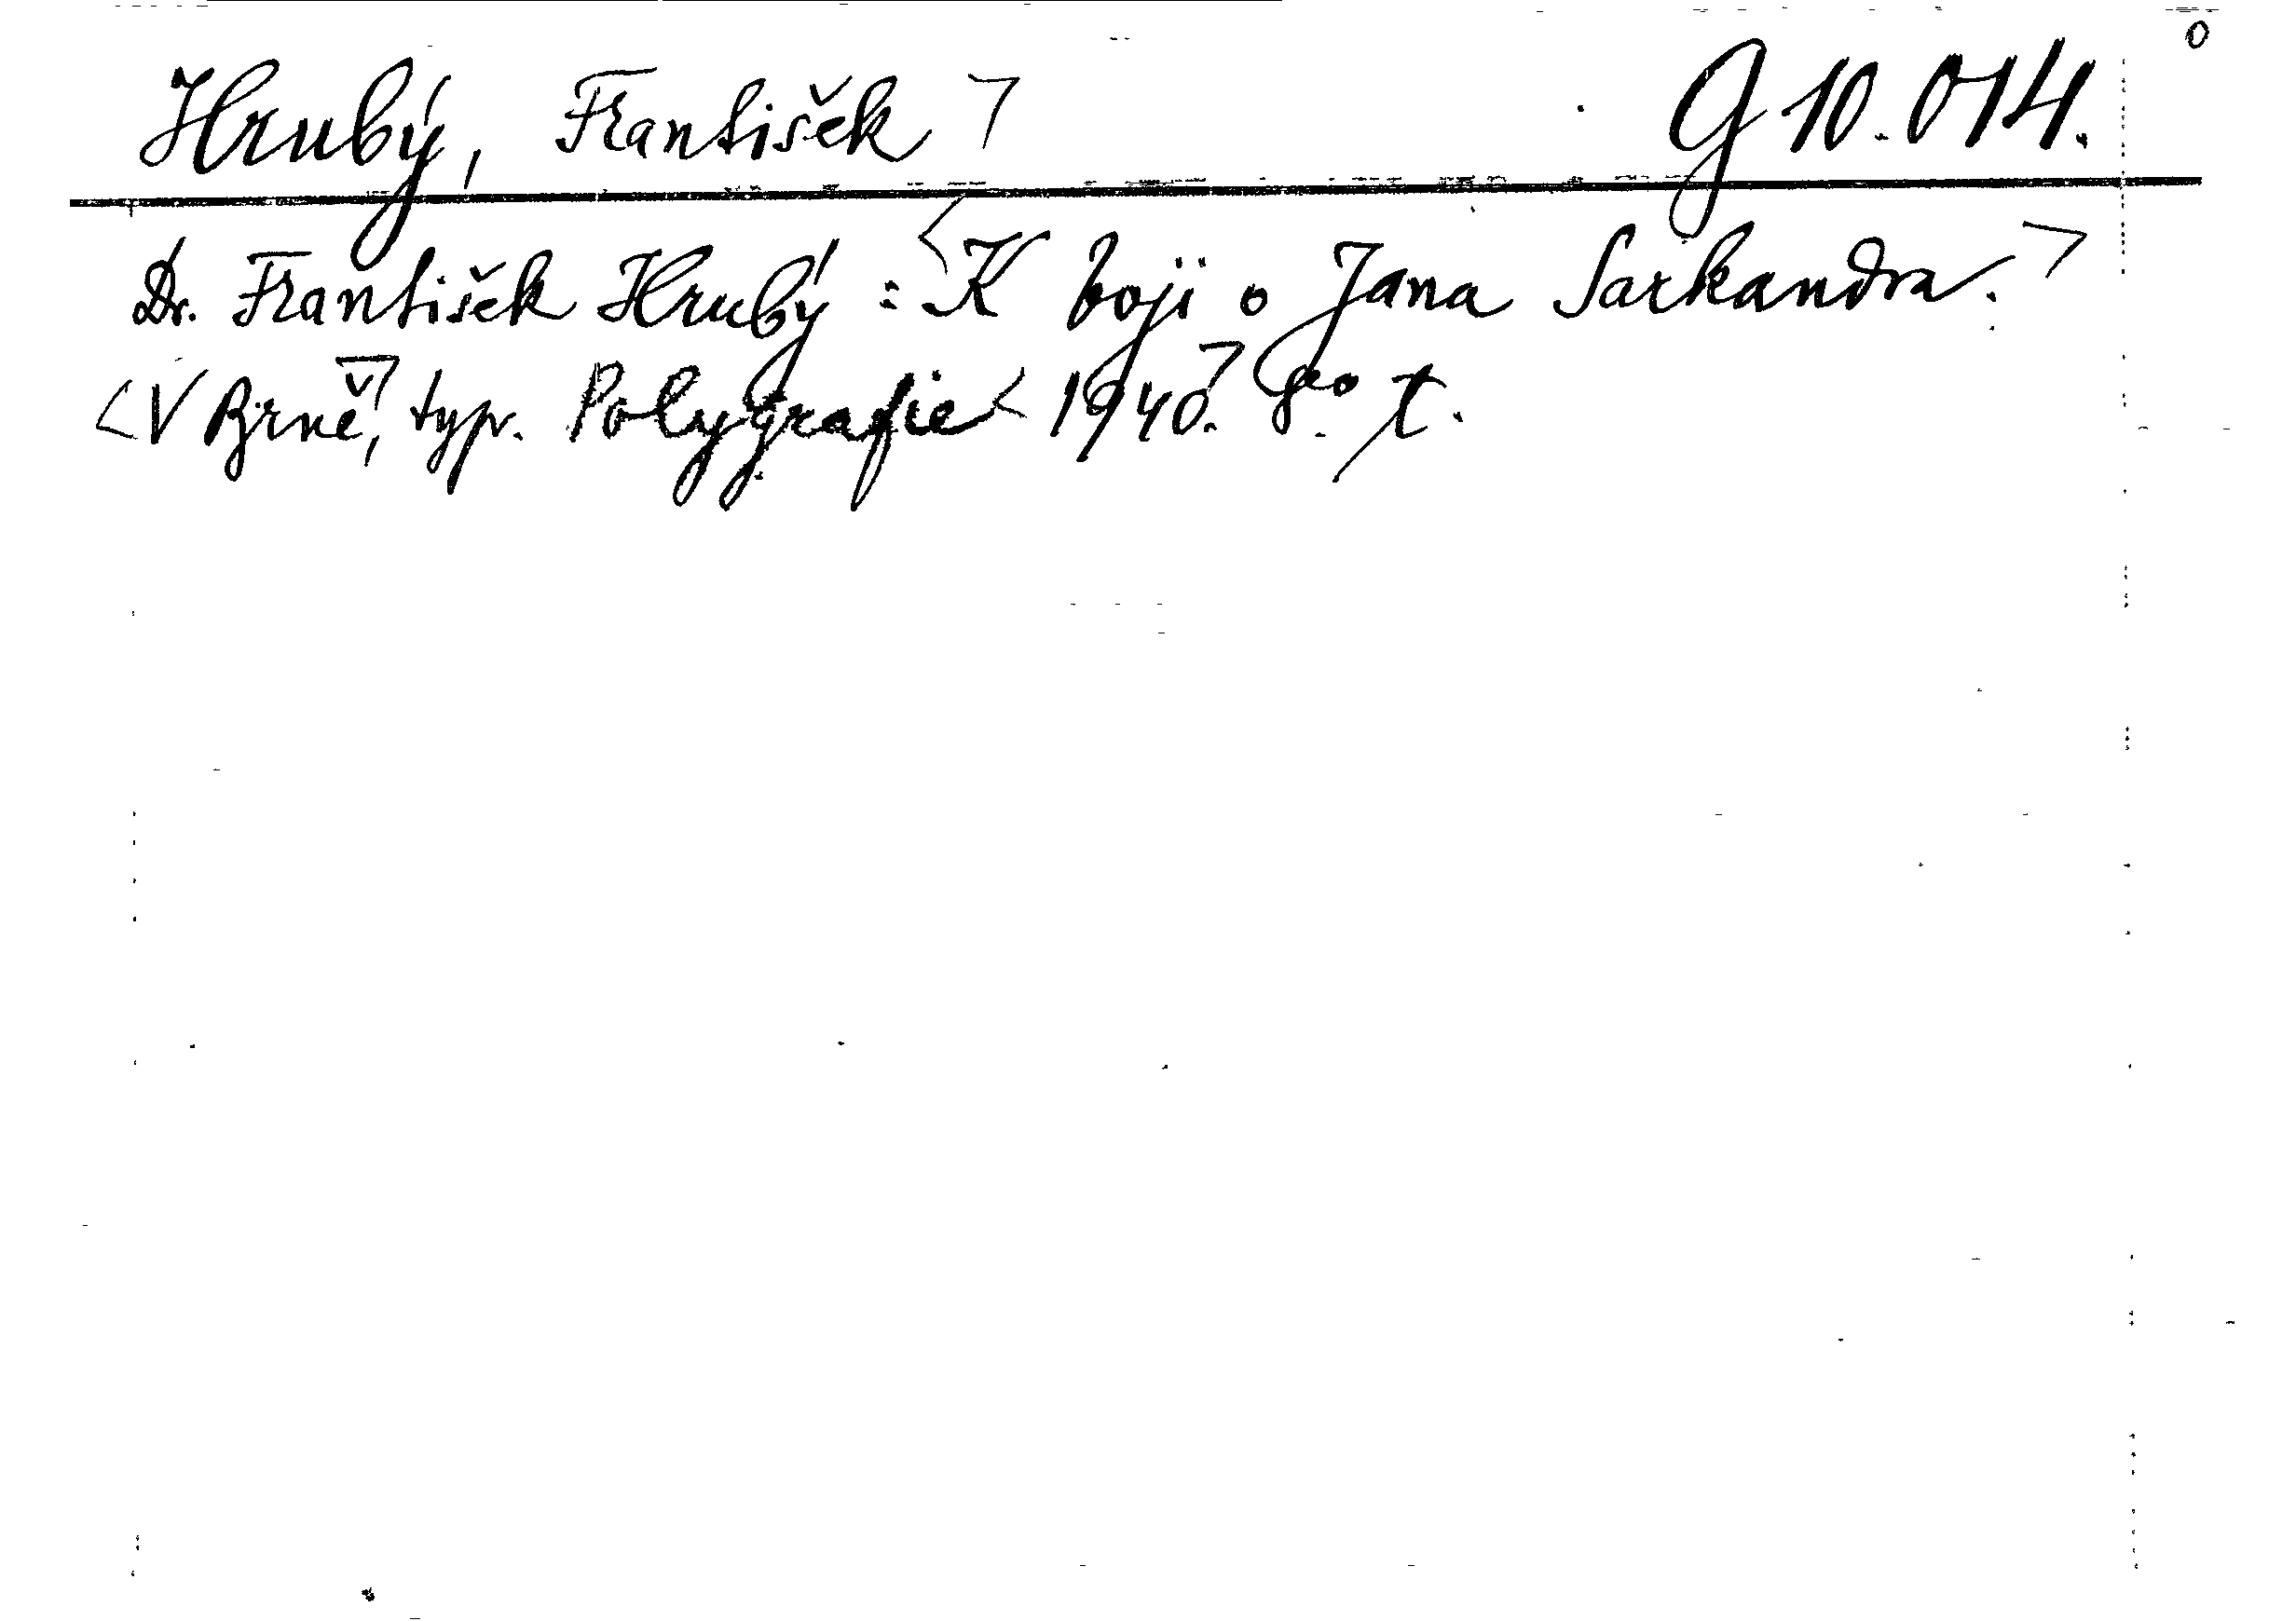 Hrubý, František ㄱ G 10.014. 0
Dr. František Hrubý : <K boji o Jana Sarkandra.>
<V Brně,> typ. Polygrafie < 1940.> 8°. t.